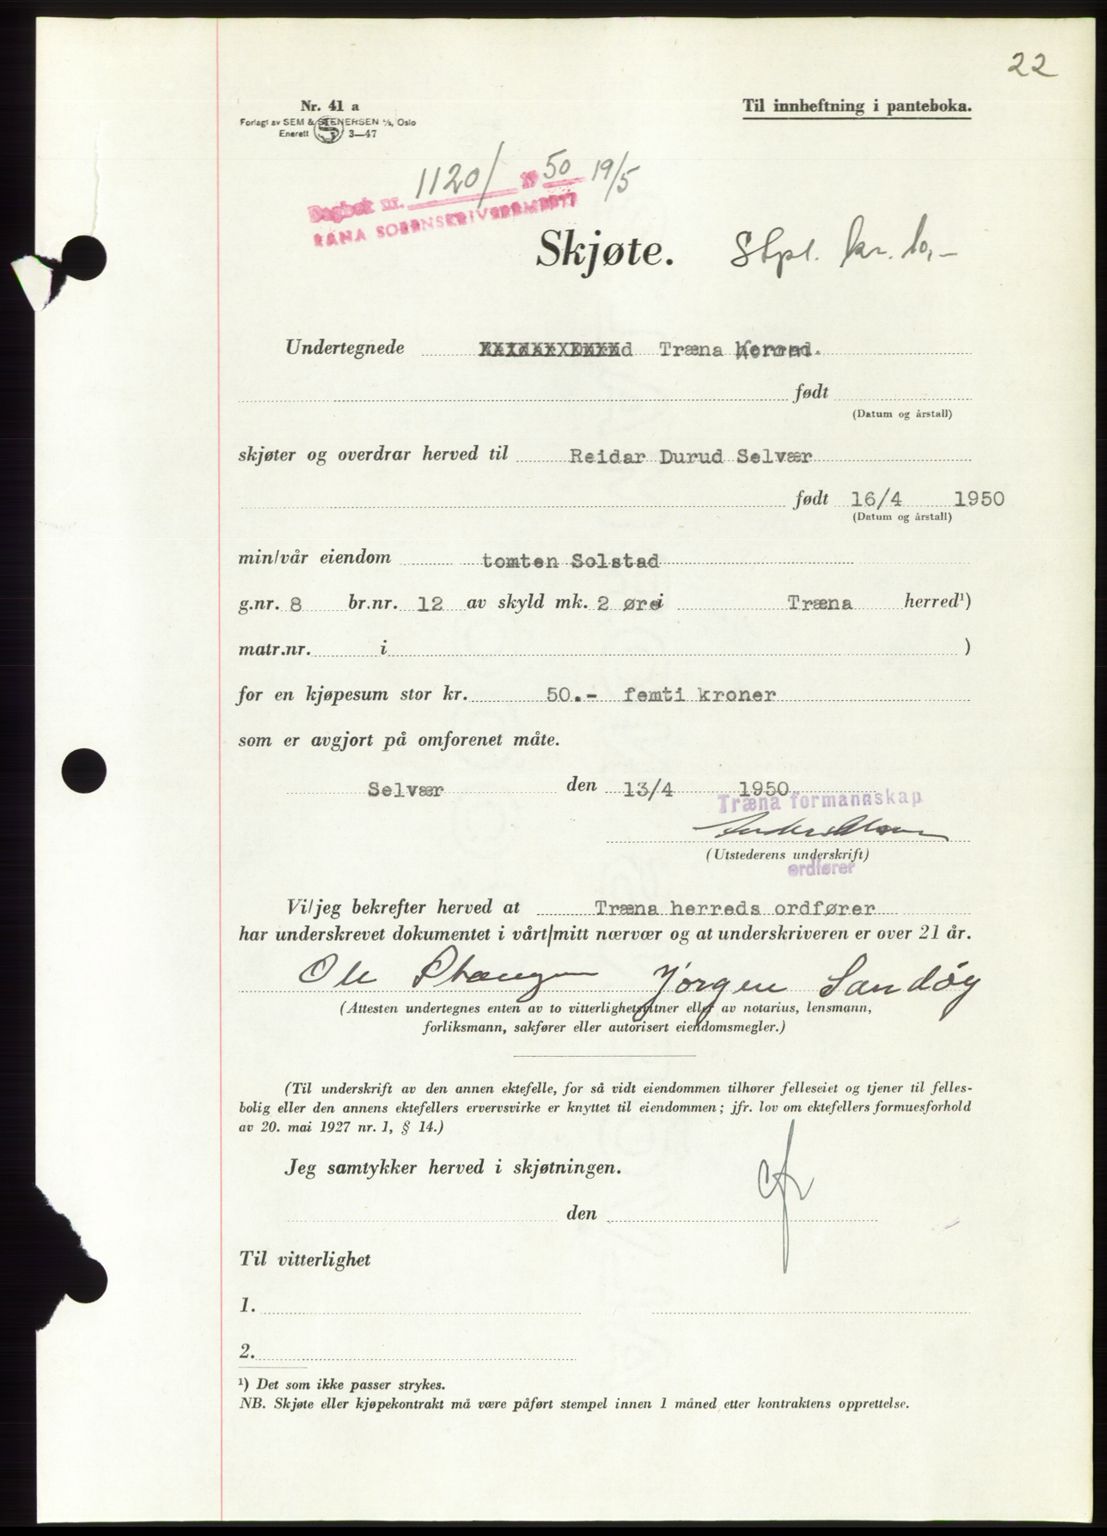 22
Nr. 41 a
Til innheftning i panteboka.
Forlagt av SEM & STENERSEN A/S, Oslo
Enerett S 3—47
Dagbok nr. 1120/ 19 50 19/5
RANA SORENSKRIVEREMBETE
Skjøte. Stpl. kr. 10,-
Undertegnede Træna herred.
født
(Datum og årstall)
skjøter og overdrar herved til Reidar Durud Selvær
født 16/4 1950
(Datum og årstall)
min/vår eiendom tomten Solstad
g.nr. 8 br.nr. 12 av skyld mk. 2 øre i Træna herred¹)
matr.nr. i )
for en kjøpesum stor kr. 50.- femti kroner
som er avgjort på omforenet måte.
Selvær den 13/4 1950
Træna formannskap
(Utstederens underskrift)
ordfører
Vi/jeg bekrefter herved at Træna herreds ordfører
har underskrevet dokumentet i vårt/mitt nærvær og at underskriveren er over 21 år.
Ole Jørgen Sandøy
(Attesten undertegnes enten av to vitterlighetsvitner eller av notarius, lensmann,
forliksmann, sakfører eller autorisert eiendomsmegler.)
(Til underskrift av den annen ektefelle, for så vidt eiendommen tilhører felleseiet og tjener til felles-
bolig eller den annens ektefellers ervervsvirke er knyttet til eiendommen; jfr. lov om ektefellers formuesforhold
av 20. mai 1927 nr. 1, § 14.)
Jeg samtykker herved i skjøtningen.
den
Til vitterlighet
1.
2.
¹) Det som ikke passer strykes.
NB. Skjøte eller kjøpekontrakt må være påført stempel innen 1 måned etter kontraktens opprettelse.